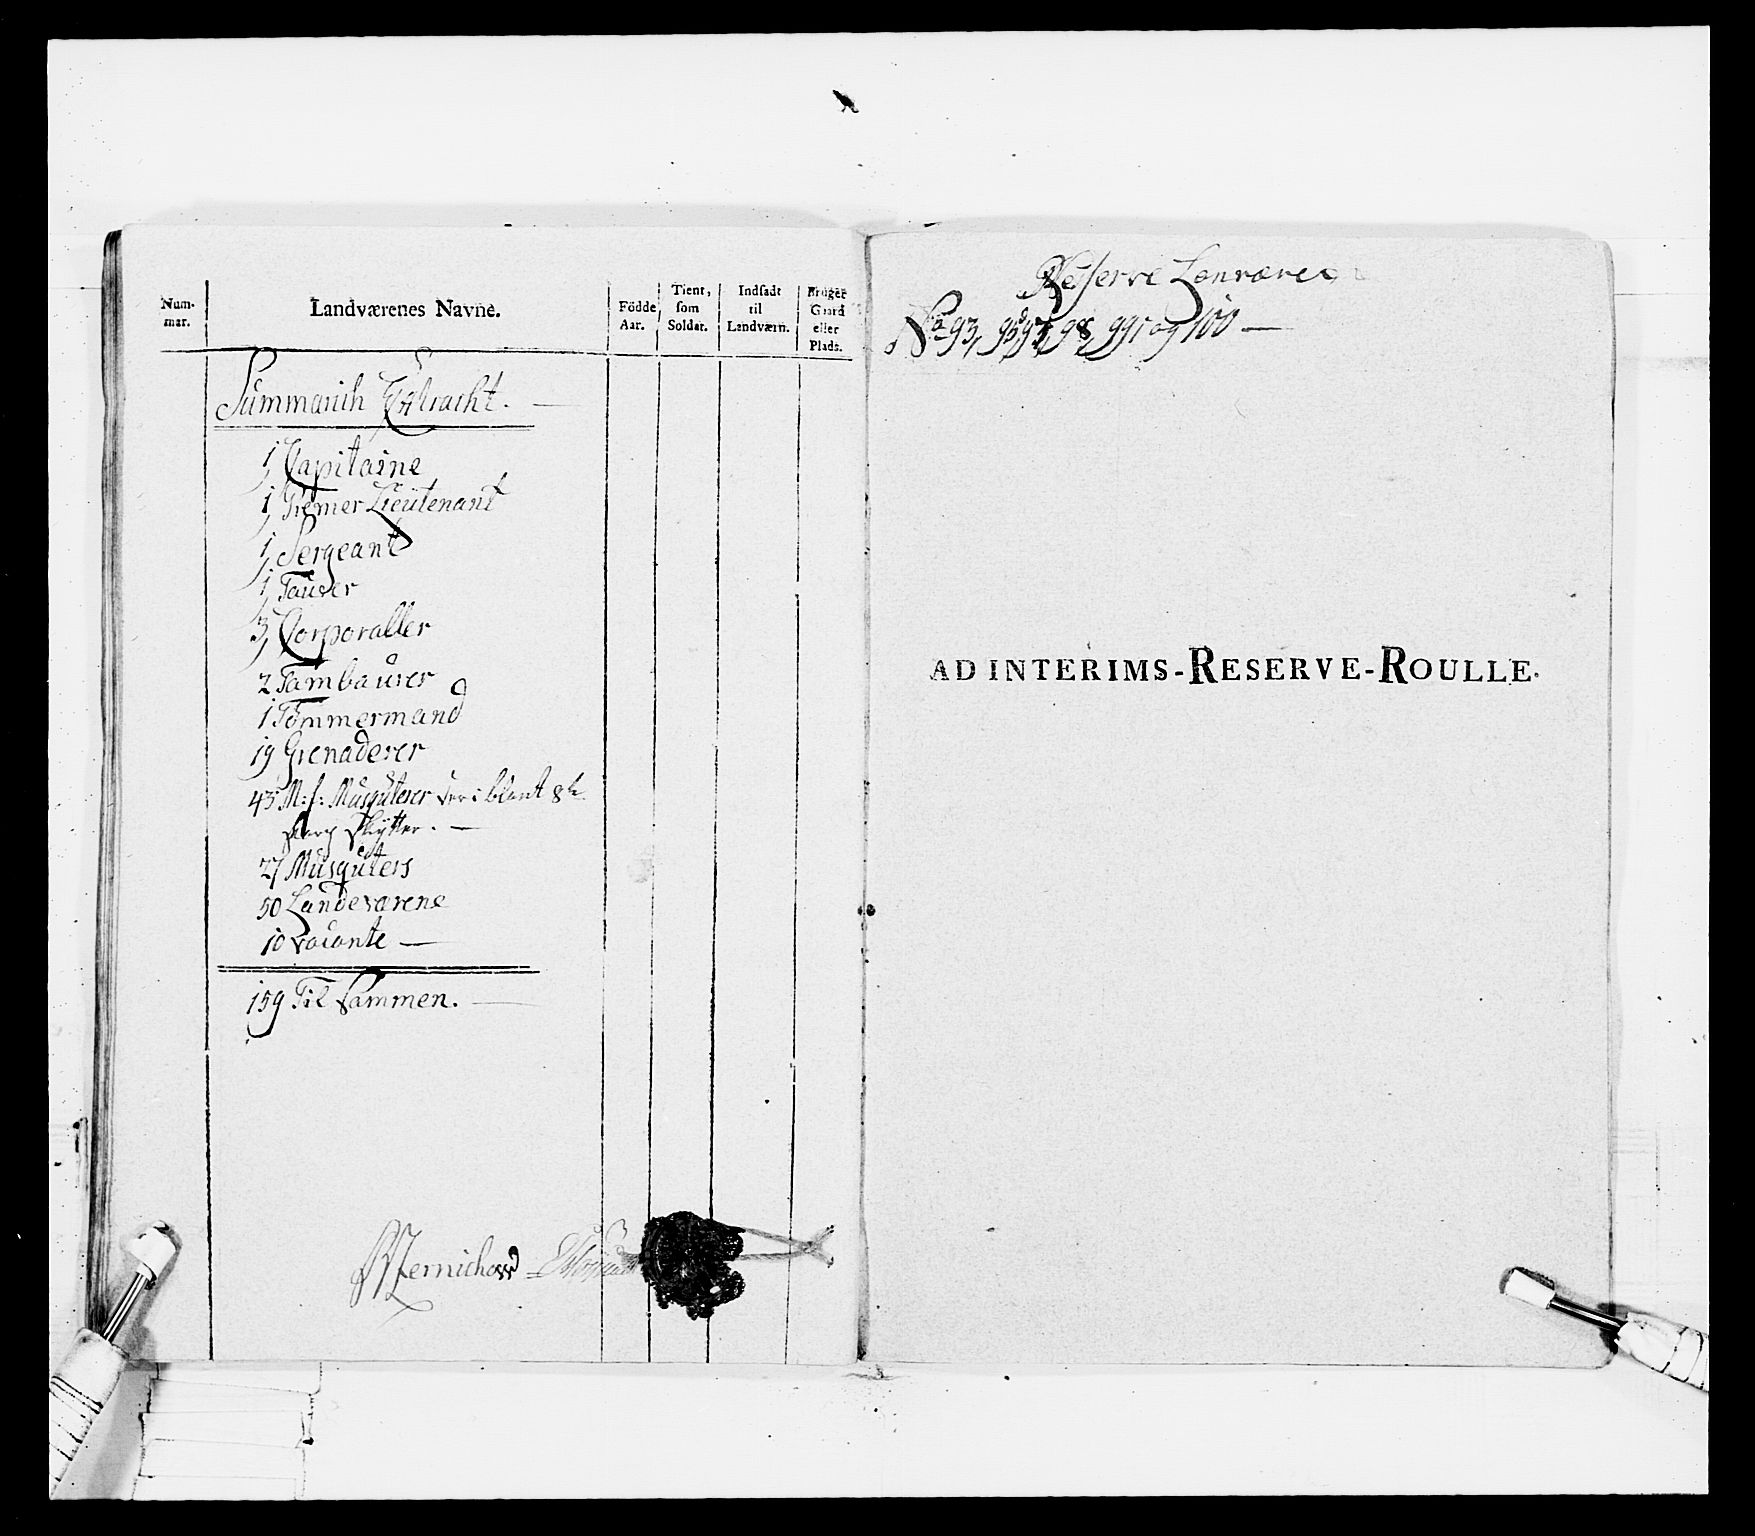 Num-
mar.
Landværenes Navne.
Födde
Aar.
Tient,
som
Soldat.
Indsadt
til
Landværn.
Bruger
Gaard
eller
Plads.
Summarisk Extracht.
1, Capitaine
1, Premier Lieutenant
1, Sergeant
1, Fourer
3, Corporaller
2 Tambourer
1 Tömmermand
19 Grenaderer
43 M: f: Musquterer der i blant 8te
skarp skÿtter. —
27 Musquters
50 Landeværene
10 vacante —
159 Til sammen. —
Wernichow
Reserve Lanværen
No 93, 95, 97, 98, 99, og 100 —
AD INTERIMS-RESERVE-ROULLE.